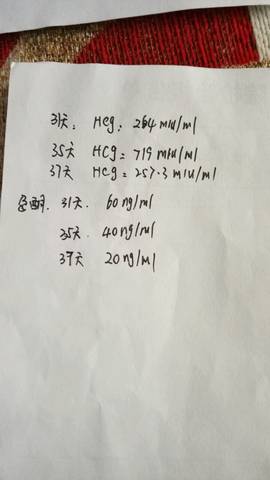 31天: HCg: 264 miu/ml
35天 HCG: 719 miu/ml
37天 HCG: 257.3 miu/ml
孕酮: 31天. 60 ng/ml
35天. 40 ng/ml
37天 20 ng/ml